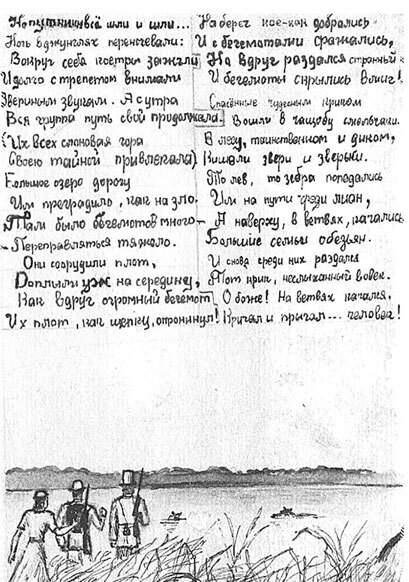 Но путники всё шли и шли...
Ночь в джунглях переночевали:
Вокруг себя костры зажгли
И долго с трепетом внимали
Звериным звукам. А с утра
Вся группа путь свой продолжала.
(Их всех слоновая гора
Своею тайной привлекала)
Большое озеро дорогу
Им преградило, как на зло.
Там было бегемотов много –
Переправляться тяжело.
Они соорудили плот,
Доплыли уж на середину,
Как вдруг огромный бегемот
Их плот, как щепку, опрокинул!
На берег кое-как добрались
И с бегемотами сражались,
Но вдруг раздался странный
И бегемоты скрылись вмиг!
Спасённые чудесным криком
Вошли в чащобу смельчаки.
В лесу, таинственном и диком,
Кишели звери и зверьки.
То лев, то зебра попадались
Им на пути среди лиан,
А наверху, в ветвях, качались
Большие семьи обезьян.
И снова среди них раздался
Тот крик, неслыханный вовек.
О боже! На ветвях качался,
Кричал и прыгал... человек!